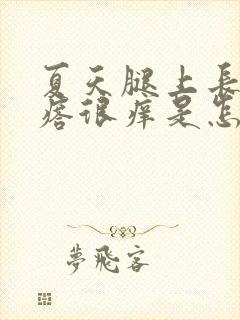 夏天腿上長
痞很痒是怎
夢飛客